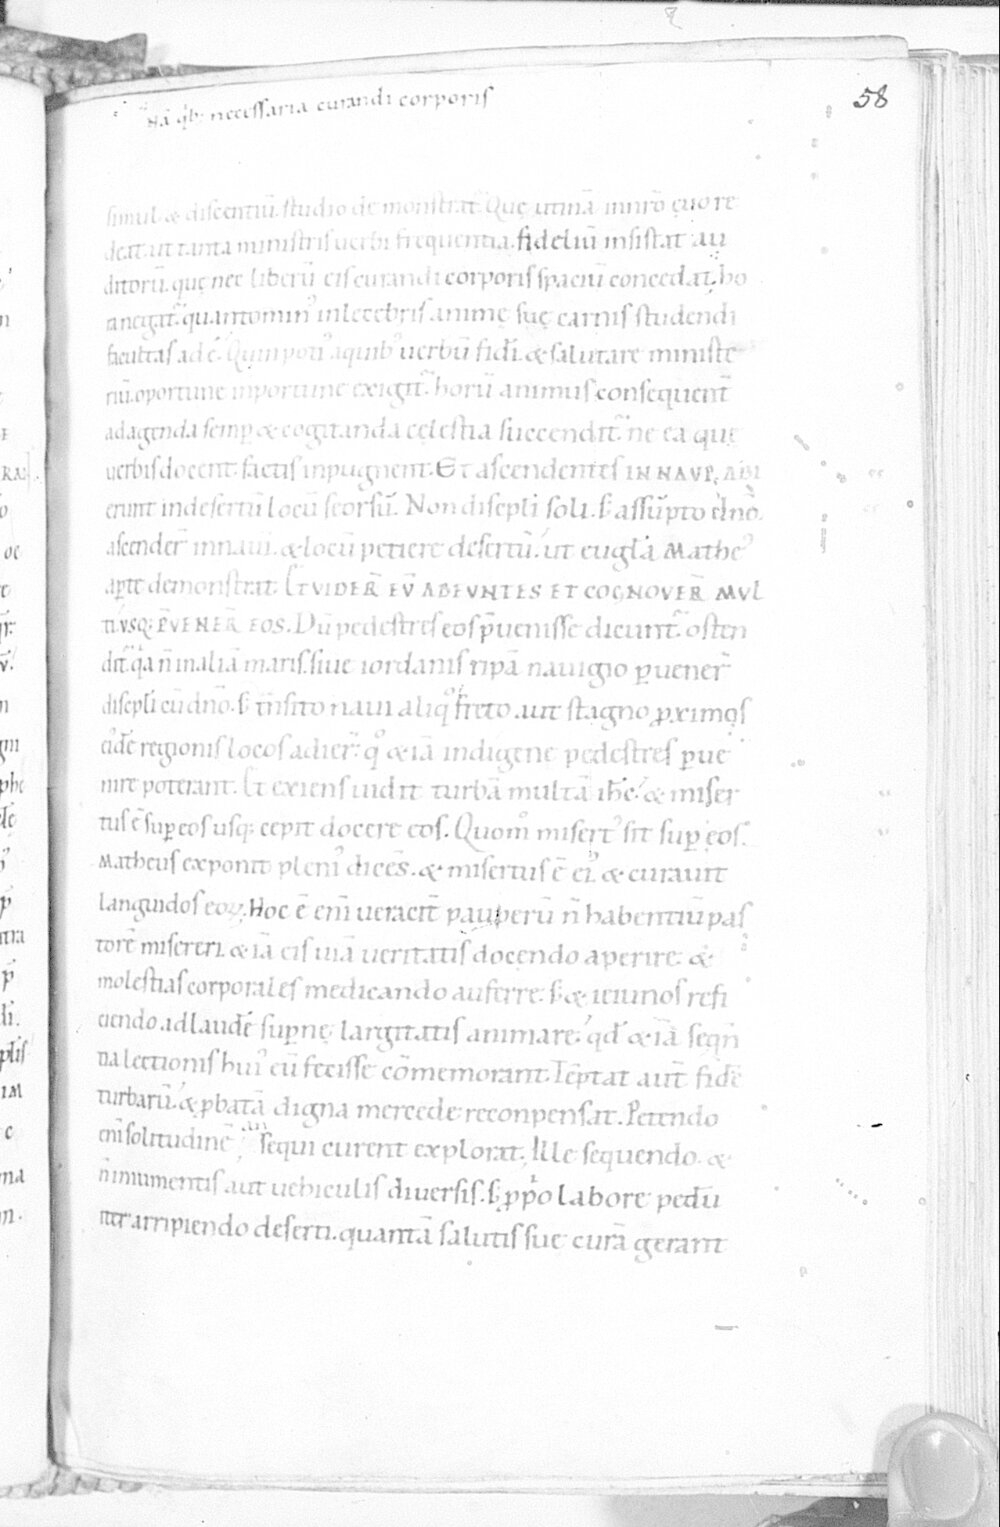 Nā qb; necessaria curandi corporis
58
simul & discentiū studio demonstrat̃. Quę utinā in nr̄o ęuo re
deat. ut tanta ministris uerbi frequentia fideliū insistat au
ditorū. quę nec liberū eis curandi corporis spaciū concedat. ho
facultas adē. Quin poti' a quib' uerbū fidi & salutare ministe
riū oportune inportune exigit̃. horū animus consequent̃
ad agenda semp̄ & cogitanda cęlestia succendit̃. ne ea quę
uerbis docent factis inpugnent. Et ascendentes IN NAVĒ, ABI
erunt in desertū locū seorsū. Non discpli soli. s; assūpto dn̄o
ascender̄ in nauī. & locū petiere desertū. ut eugl̄a Mathe'
aperte demonstrat. ET VIDER̄ EV̄ ABEVNTES ET COGNOVER̄ MVL
ti VSQ; P̄VENER̄ EOS. Dū pedestres eos p̄uenisse dicunt̃. osten
dit̃ q̄a n̄ in aliā maris. siue iordanis ripā nauigio puener̄
discpli cū dn̄o. s; t̄nsito naui aliq° freto aut stagno proximos
eide regionis locos adier̄. q° & iā indigenę pedestres perue
nire poterant. Et exiens uidit turbā multā ihc. & miser
tus ē sup eos usq; cepit docere eos. Quom° misert' sit sup eos.
Matheus exponit pleni' dicēs. & misertus ē ei'. & curauit
languidos eoꝝ. Hoc ē enī ueracit̄ pauperū n̄ habentiū pas
torē misereri. & iā eis uiā ueritatis docendo aperire. &
molestias corporales medicando auferre. s; & ieiunos refi
ciendo ad laudē supnę largitatis animare. qd & iā seqn̄
tia lectionis hui' eū fecisse cōmemorant. Tēptat aut̄ fidē
turbarū. & pbatā digna mercede reconpensat. Petendo
enī solitudinē an sequi curent explorat. Ille sequendo. &
n̄ in iumentis aut uehiculis diuersis. s; pp°o labore pedū
iter arripiendo deserti. quantā salutis suę curā gerant